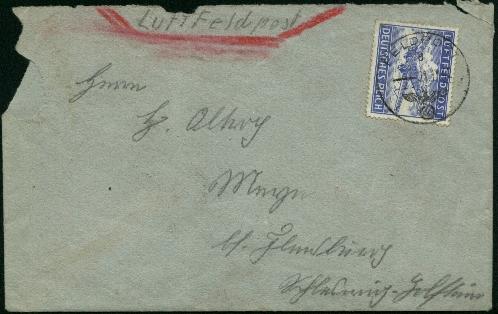 Luftfeldpost
LUFTFELDPOST
DEUTSCHES REICH
FELDPOST
Herrn
Meyn
b/ Flensburg
Schleswig-Holstein